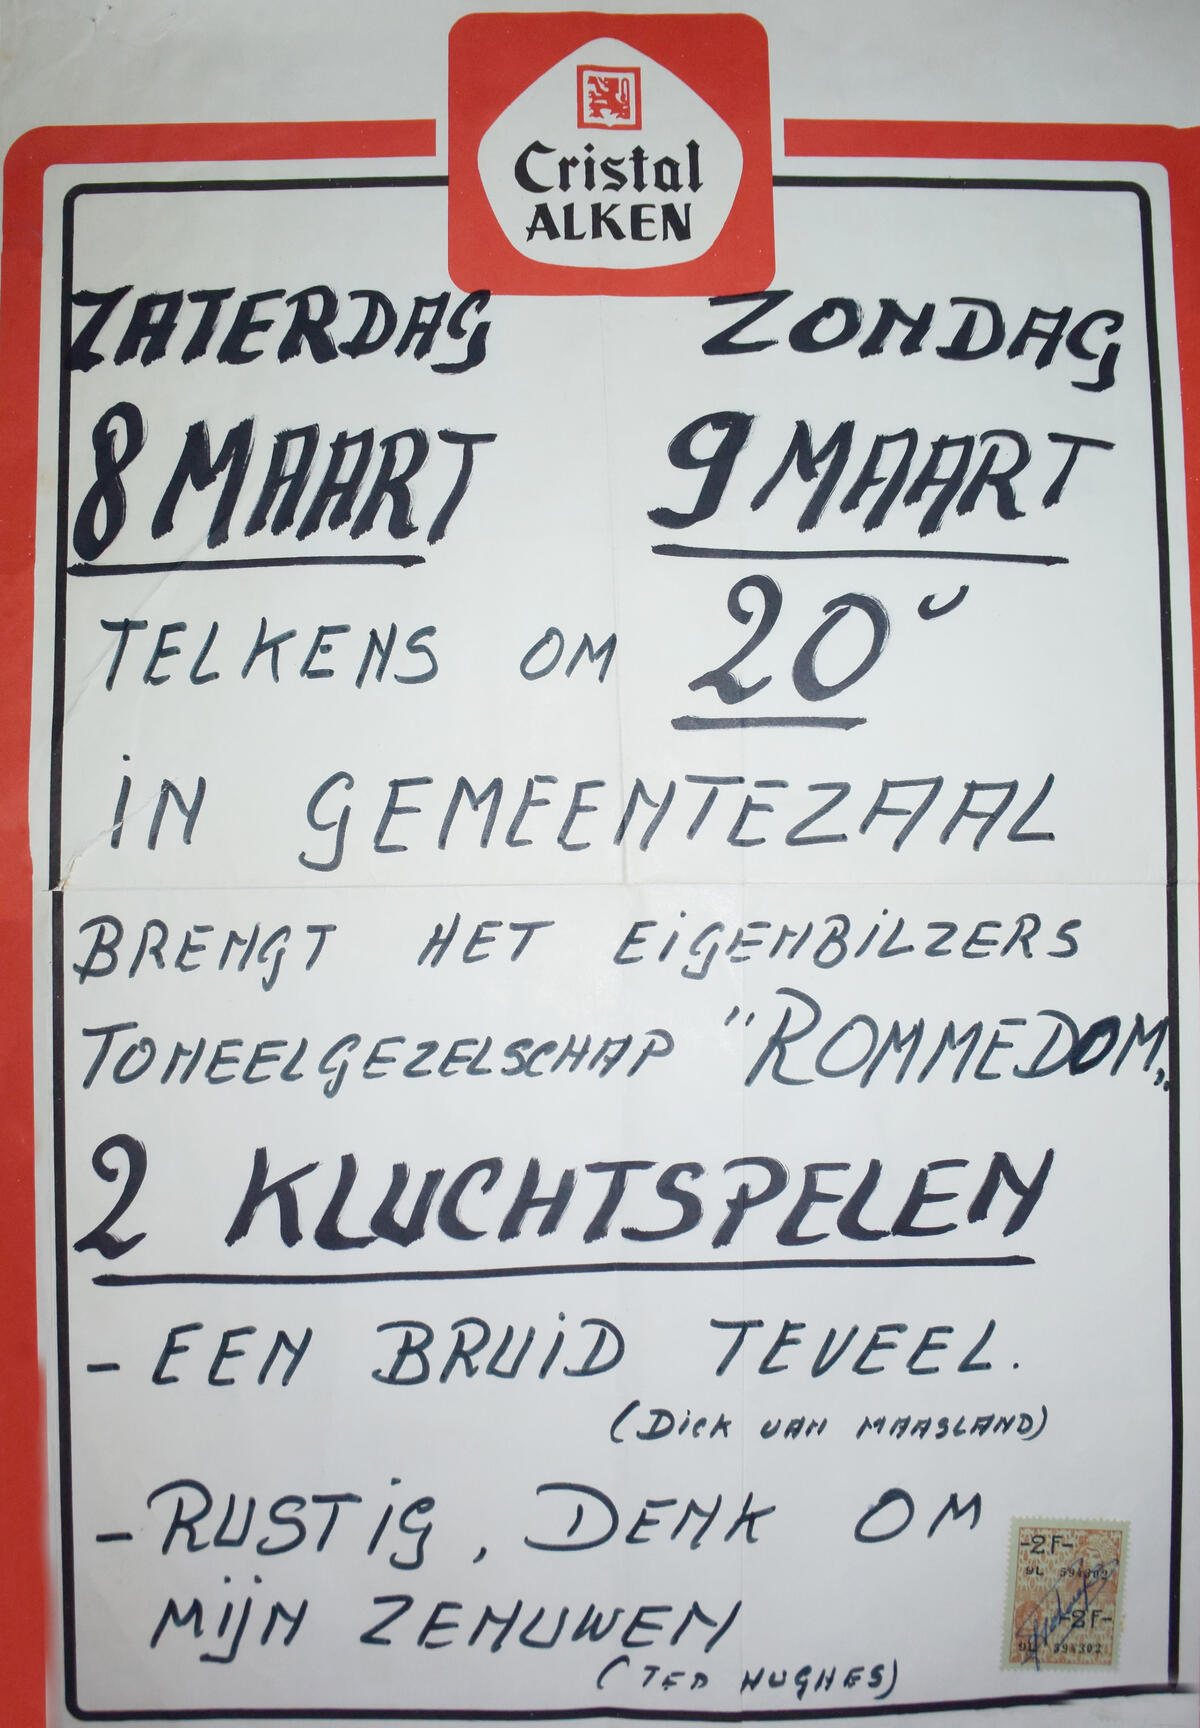 Cristal
ALKEN
ZATERDAG ZONDAG
8 MAART 9 MAART
TELKENS OM 20U
iN GEMEENTEZAAL
BRENGT HET EiGENBiLZERS
TONEELGEZELSCHAP "ROMMEDOM„
2 KLUCHTSPELEN
- EEN BRUiD TEVEEL.
(DiCK VAN MAASLAND)
- RUSTiG, DENK OM
MijN ZENUWEN
(TED HUGHES)
-2F-
9L 594302
-2F-
9L 594302